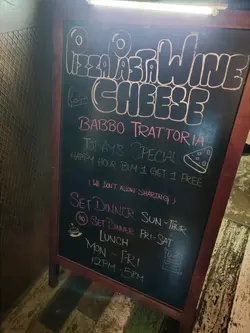 PIZZA PASTA WINE
CHEESE
BABBO TRATTORIA
TODAYS SPECIAL
HAPPY HOUR BUY 1 GET 1 FREE
(WE DON'T ALLOW SHARING)
SET DINNER SUN-THUR
SET DINNER FRI-SAT
LUNCH
MON - FRI
12PM - 5PM